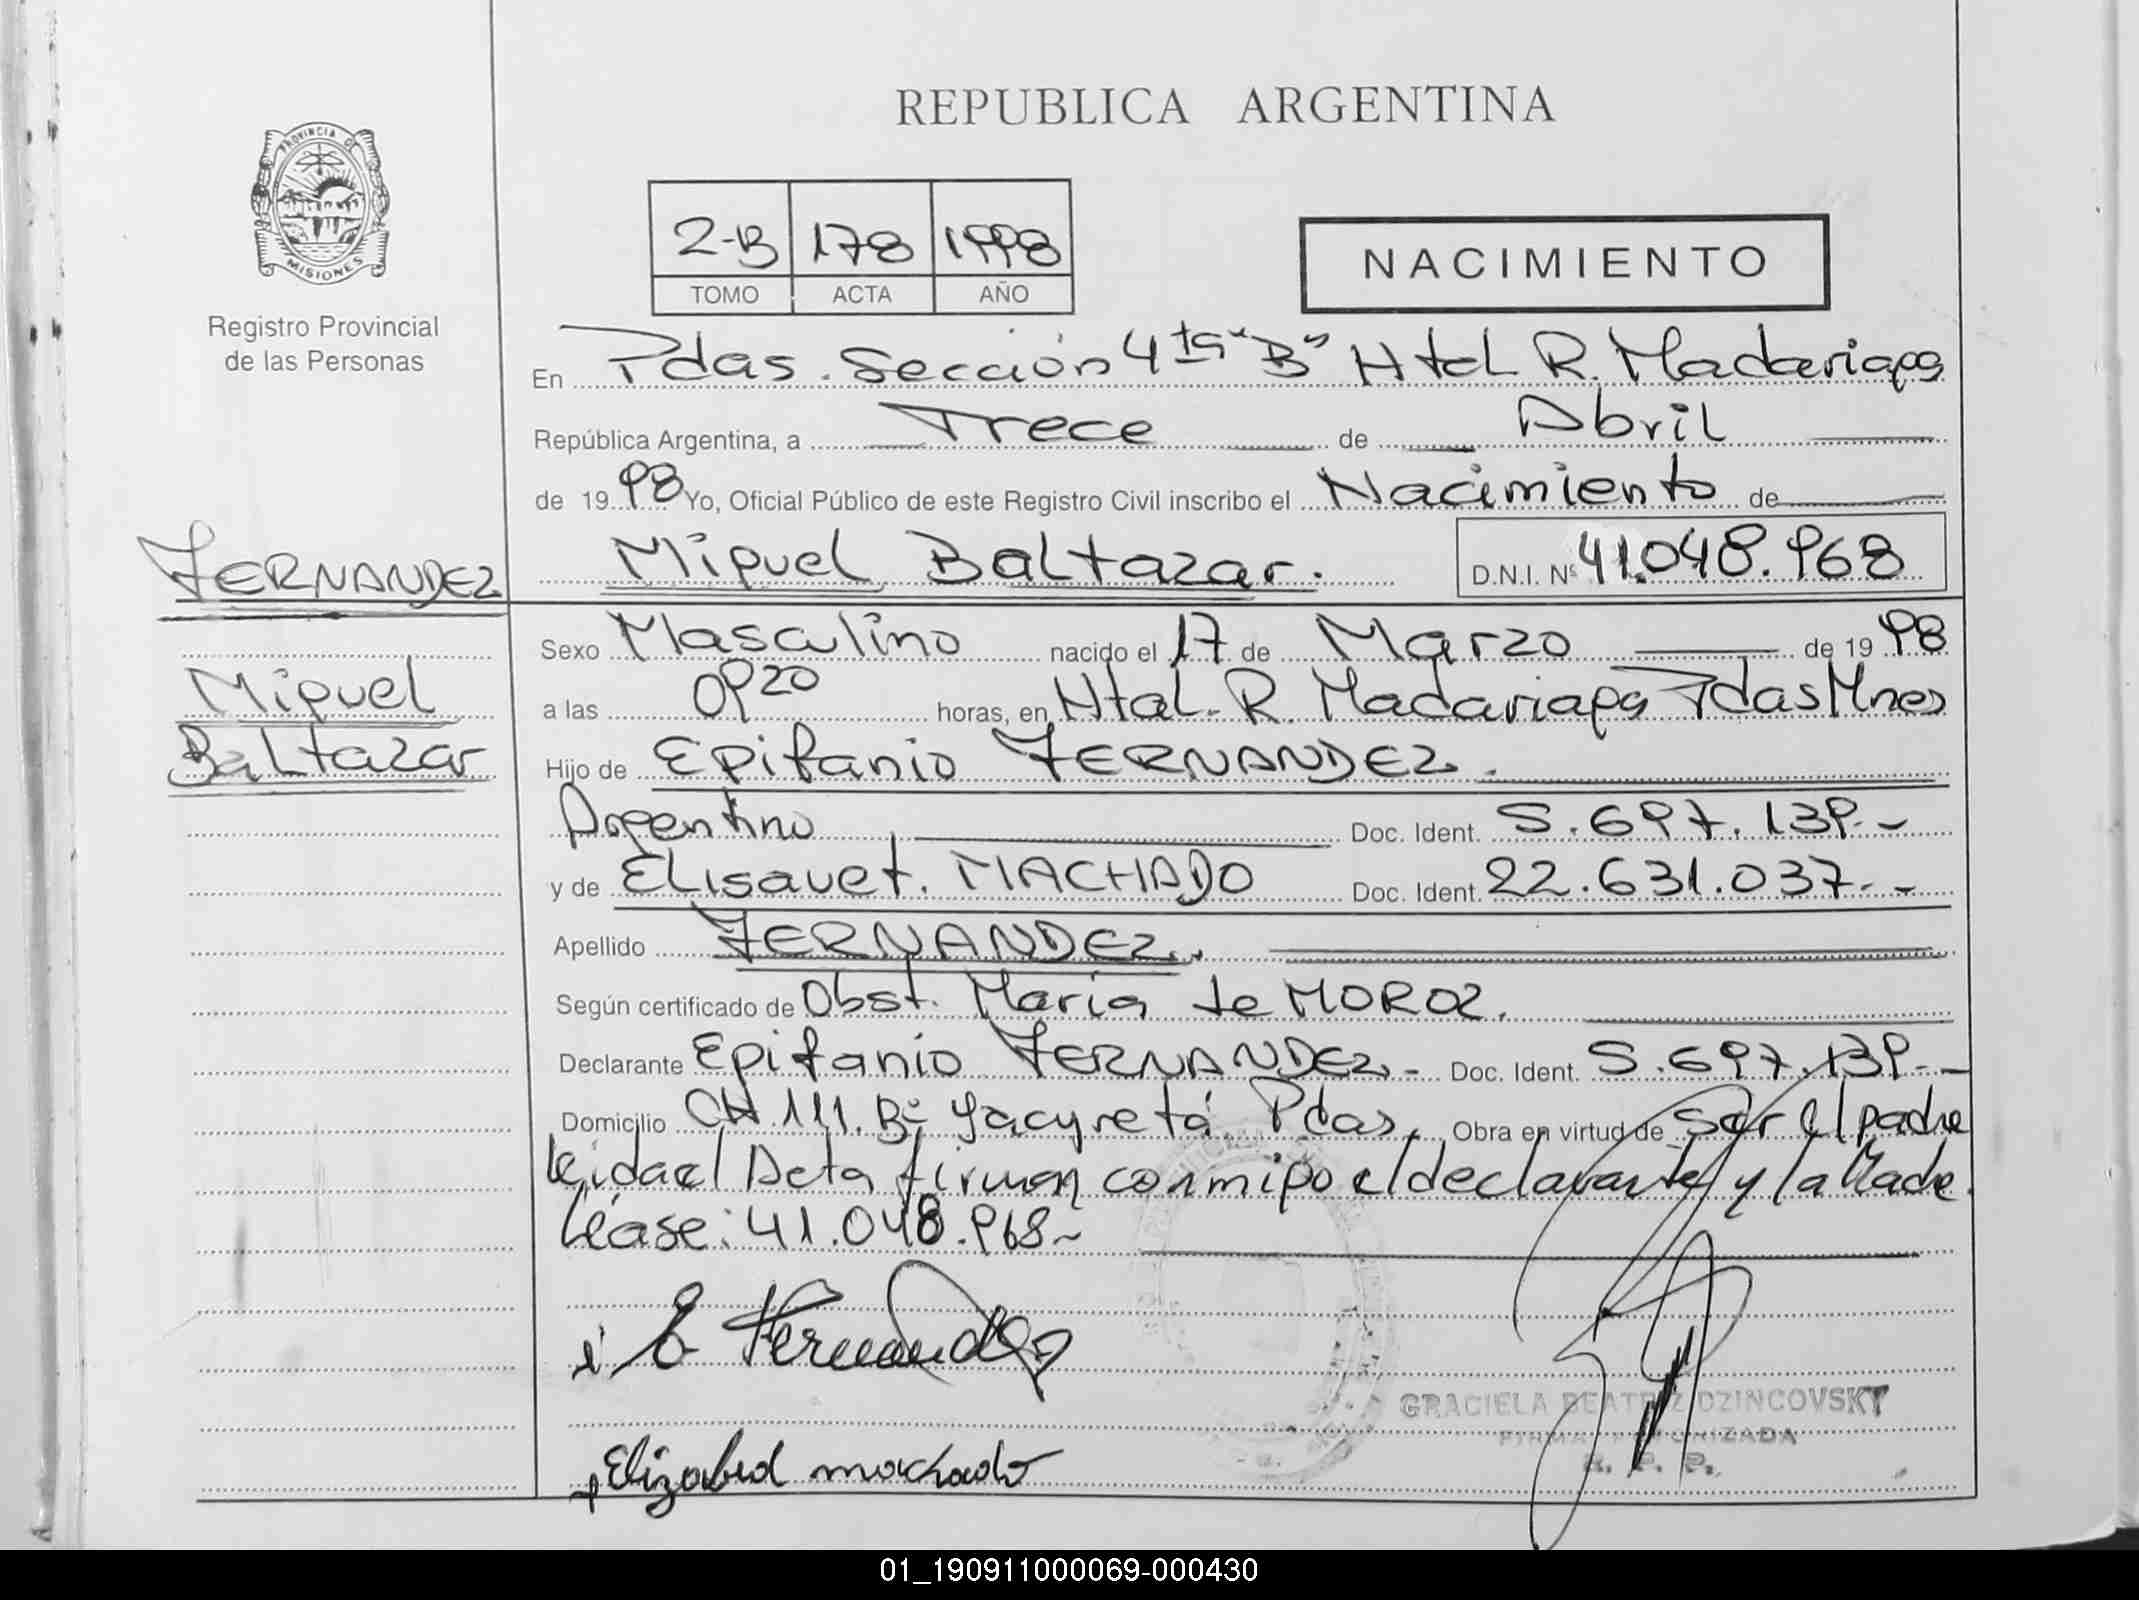 REPUBLICA ARGENTINA
PROVINCIA DE
MISIONES
Registro Provincial
de las Personas
2-B 178 1998
TOMO ACTA AÑO
NACIMIENTO
En Pdas. Sección 4ta "B" Htal R. Madariaga
República Argentina, a Trece de Abril
de 19 98 Yo, Oficial Público de este Registro Civil inscribo el Nacimiento de
Miguel Baltazar. D.N.I. Nº 41.048.968
FERNANDEZ
Miguel
Baltazar
Sexo Masculino nacido el 17 de Marzo de 19 98
a las 0920 horas, en Htal. R. Madariaga Pdas Mnes
Hijo de Epifanio FERNANDEZ.
Argentino Doc. Ident. 5.697.139.-
y de Elisavet. MACHADO Doc. Ident. 22.631.037.-
Apellido FERNANDEZ.
Según certificado de Obst. María te MOROZ.
Declarante Epifanio FERNANDEZ.- Doc. Ident. 5.697.139.-
Domicilio CH 111. Bº Yacyretá Pdas. Obra en virtud de Ser el padre
leida el Acta firman conmigo el declarante y la Madre.
Léase: 41.048.968~
E Fernandez
GRACIELA BEATRIZ DZINCOVSKY
FIRMA AUTORIZADA
R. P. P.
Elizabed machado
01_190911000069-000430